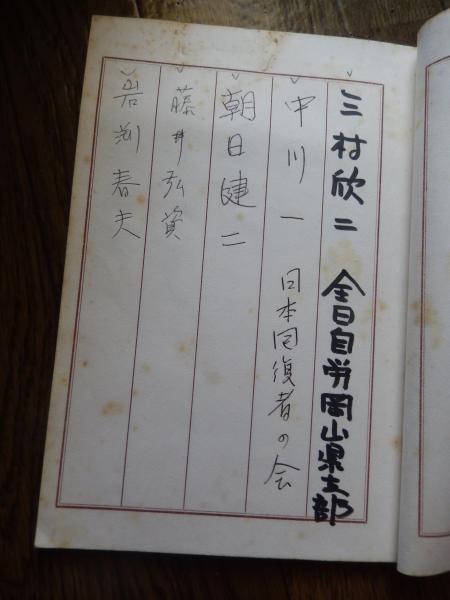 三村欣二 全日自労岡山県支部
中川一 日本回復者の会
朝日健二
藤井弘資
岩渕春夫